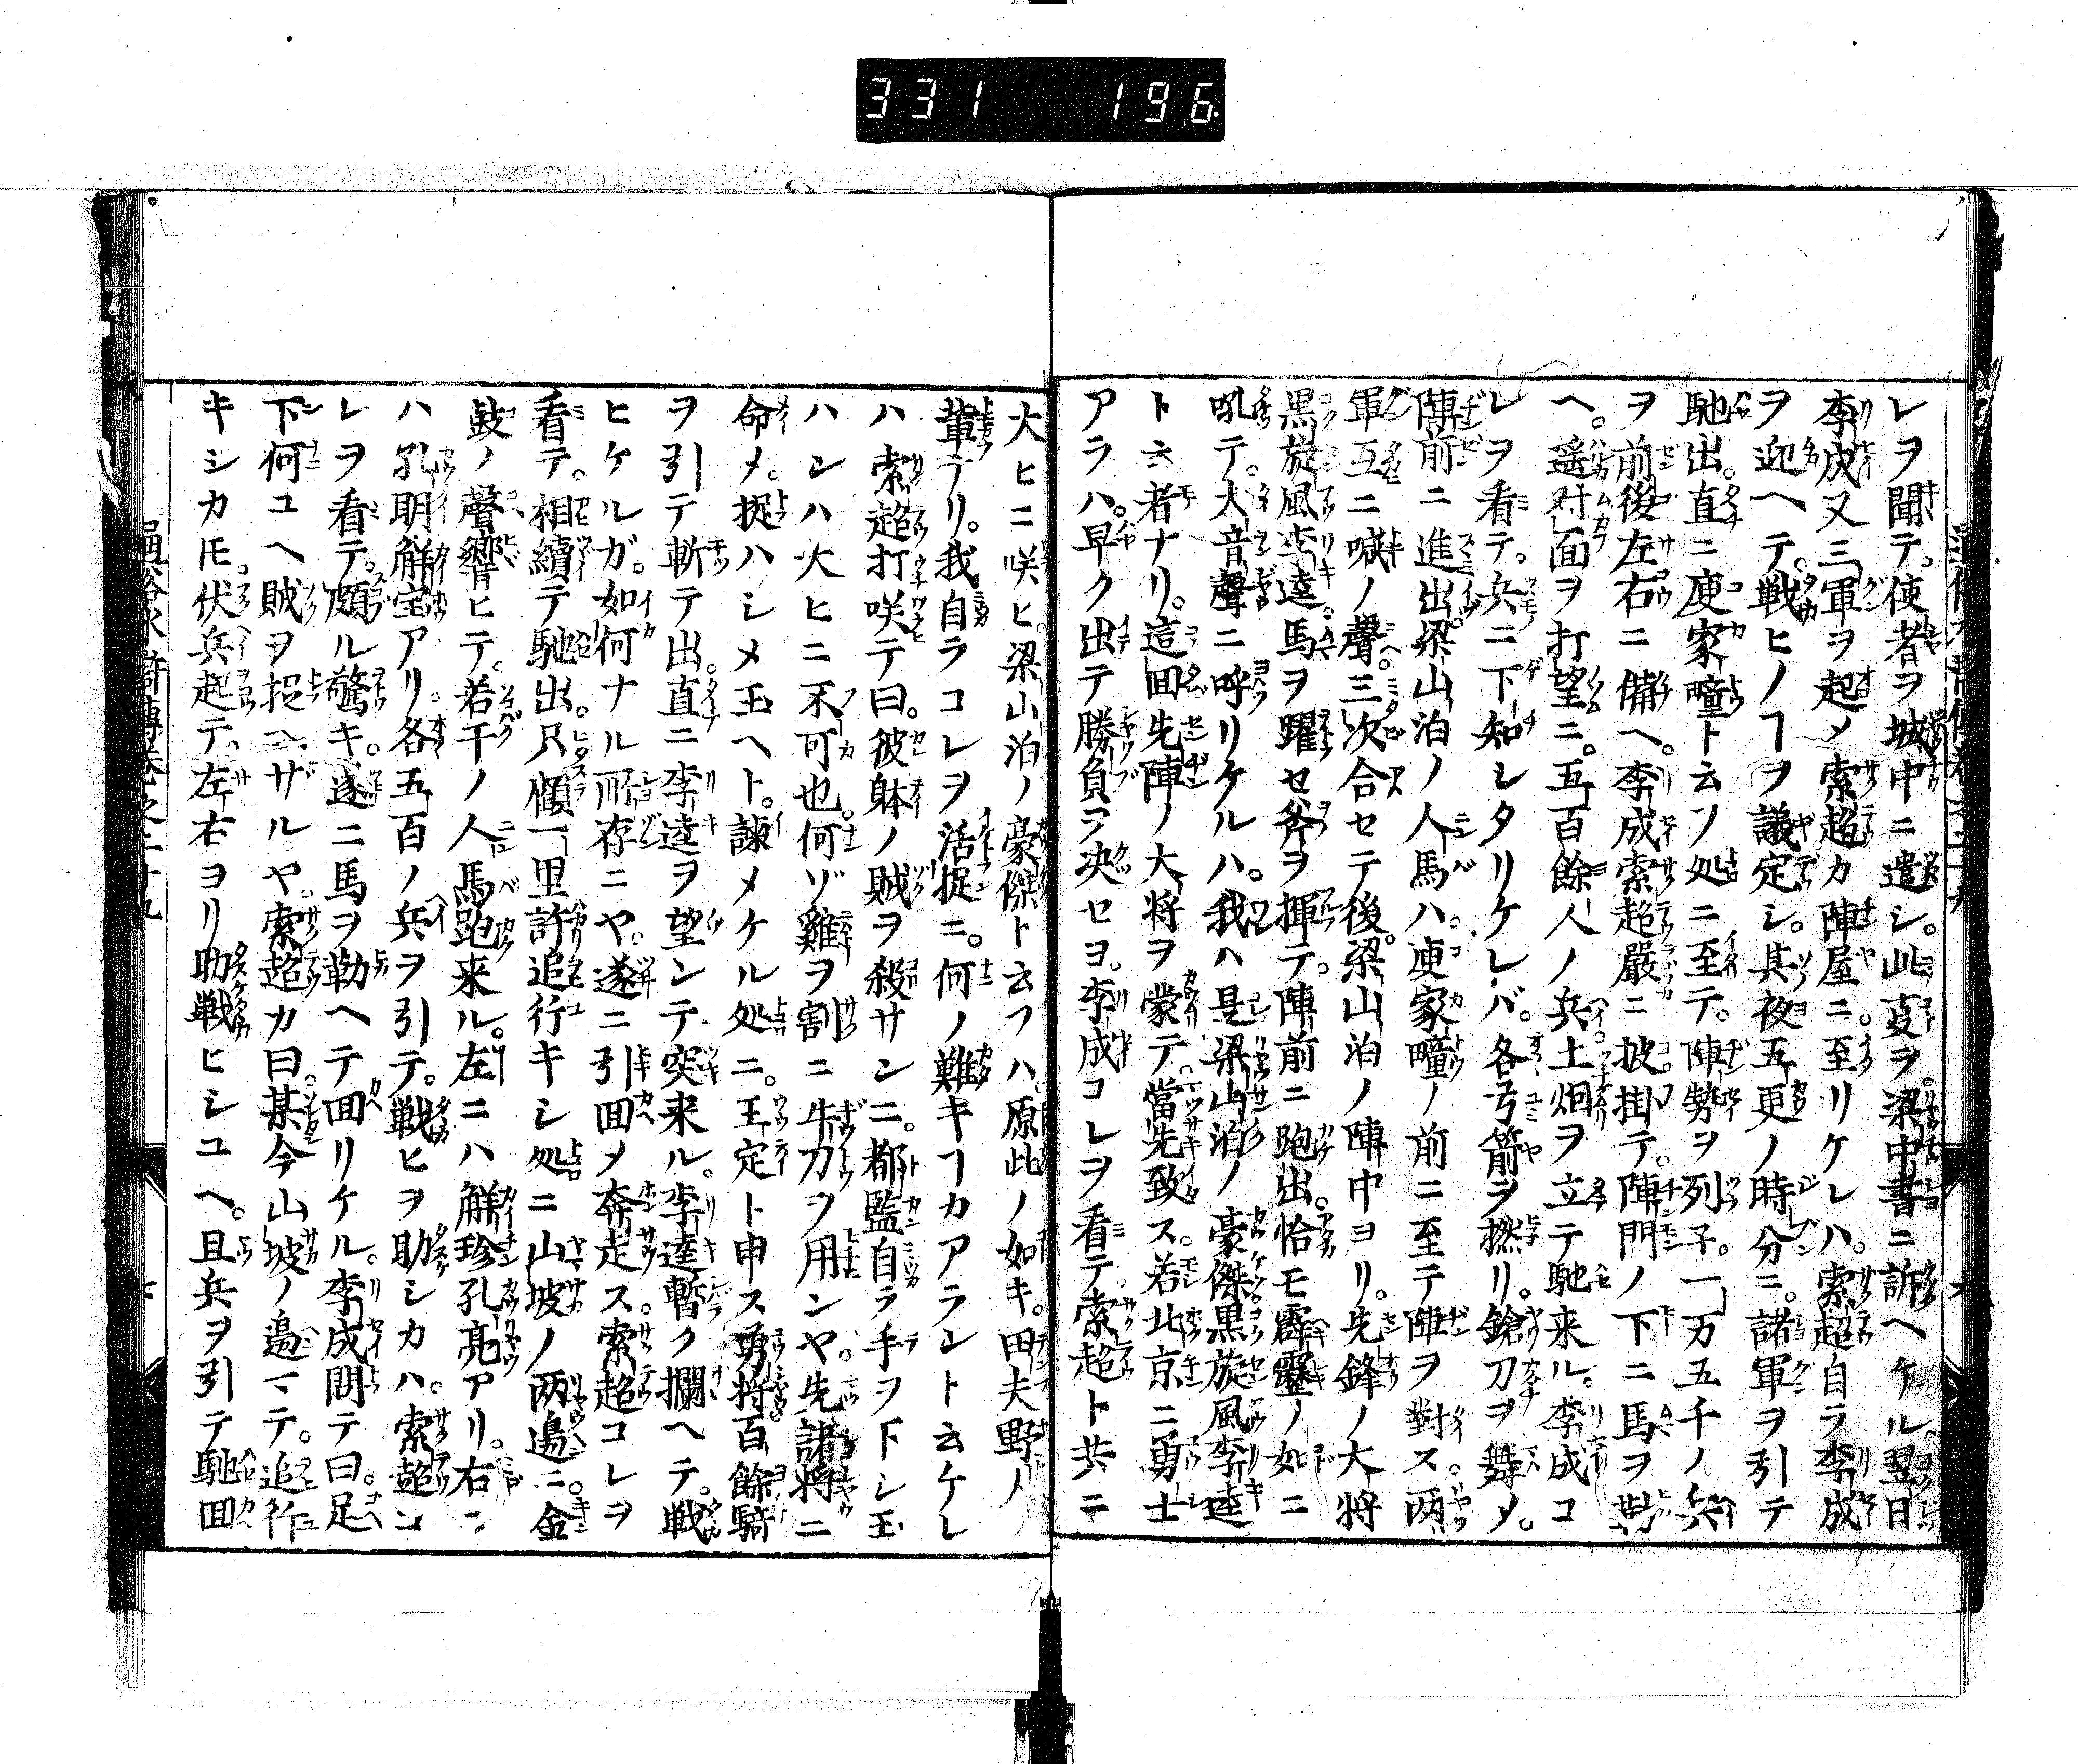 331 196
レヲ聞テ。使者ヲ城中ニ遣シ。此叓ヲ。梁中書ニ訴ヘケル翌日
李成又三軍ヲ起メ索超カ陣屋ニ。至リケレハ。索超自ラ李成
ヲ迎ヘテ。戦ヒノヿヲ議定シ。其夜五更ノ時分ニ。諸軍ヲ引テ
馳出。直ニ庾家疃ト云フ処ニ至テ。陣勢ヲ列子。一万五千ノ兵
ヲ前後左右ニ備ヘ。李成索超嚴ニ披掛テ。陣門ノ下ニ馬ヲ
ヘ。遥対面ヲ打望ニ。五百餘人ノ兵。土烟ヲ立テ馳来ル。李成コ
レヲ看テ。兵ニ下知シタリケレバ。各弓箭ヲ撚リ。鎗刀ヲ舞メ。
陣前ニ進出。梁山泊ノ人馬ハ。庾家疃ノ前ニ至テ陣ヲ對ス。两
軍互ニ喊ノ聲。三次合セテ後。梁山泊ノ陣中ヨリ。先鋒ノ大将
黒旋風李逵。馬ヲ躍セ斧ヲ揮テ。陣前ニ跑出。恰モ霹靂ノ如ニ
吼テ。大音聲ニ呼リケルハ。我ハ是梁山泊ノ豪傑黒旋風李逵
ト云者ナリ。這回先陣ノ大将ヲ蒙テ。當先致ス。若北京ニ勇士
アラハ。早ク出テ勝負ヲ决セヨ。李成コレヲ看テ。索超ト共ニ
大ヒニ咲ヒ。梁山泊ノ豪傑ト云フハ。原此ノ如キ。田夫野ノ
輩テリ。我自ラコレヲ活捉ニ。何ノ難キヿカアラント云ケレ
ハ索超打咲テ曰。彼躰ノ賊ヲ殺サンニ。都監自ラ手ヲ下シ玉
ハンハ大ヒニ不可也。何ゾ雞ヲ割ニ牛刀ヲ用ンヤ。先諸将ニ
命メ。捉ハシメ玉ヘト。諫メケル処ニ。王定ト申ス勇将百餘騎
ヲ引テ斬テ出。直ニ李逵ヲ望ンテ突来ル。李逵暫ク攔ヘテ。戦
ヒケルガ。如何ナル所存ニヤ。遂ニ引回メ奔走ス。索超コレヲ
看テ。相續テ馳出。只顧一里許追行キシ処ニ山坡ノ两邊ニ。金
鼓ノ聲響ヒテ。若干ノ人馬跑来ル。左ニハ解珍孔亮アリ。右ニ
ハ孔明解宝アリ。各五百ノ兵ヲ引テ。戦ヒヲ助シカハ。索超コ
レヲ看テ。頗ル驚キ。遂ニ馬ヲ勒ヘテ回リケル。李成問テ曰。足
下何ユヘ賊ヲ捉ヘザルヤ。索超カ曰。某今山坡ノ邉マテ。追行
キシカ𪜈。伏兵起テ。左右ヨリ助戦ヒシユヘ。且兵ヲ引テ馳回